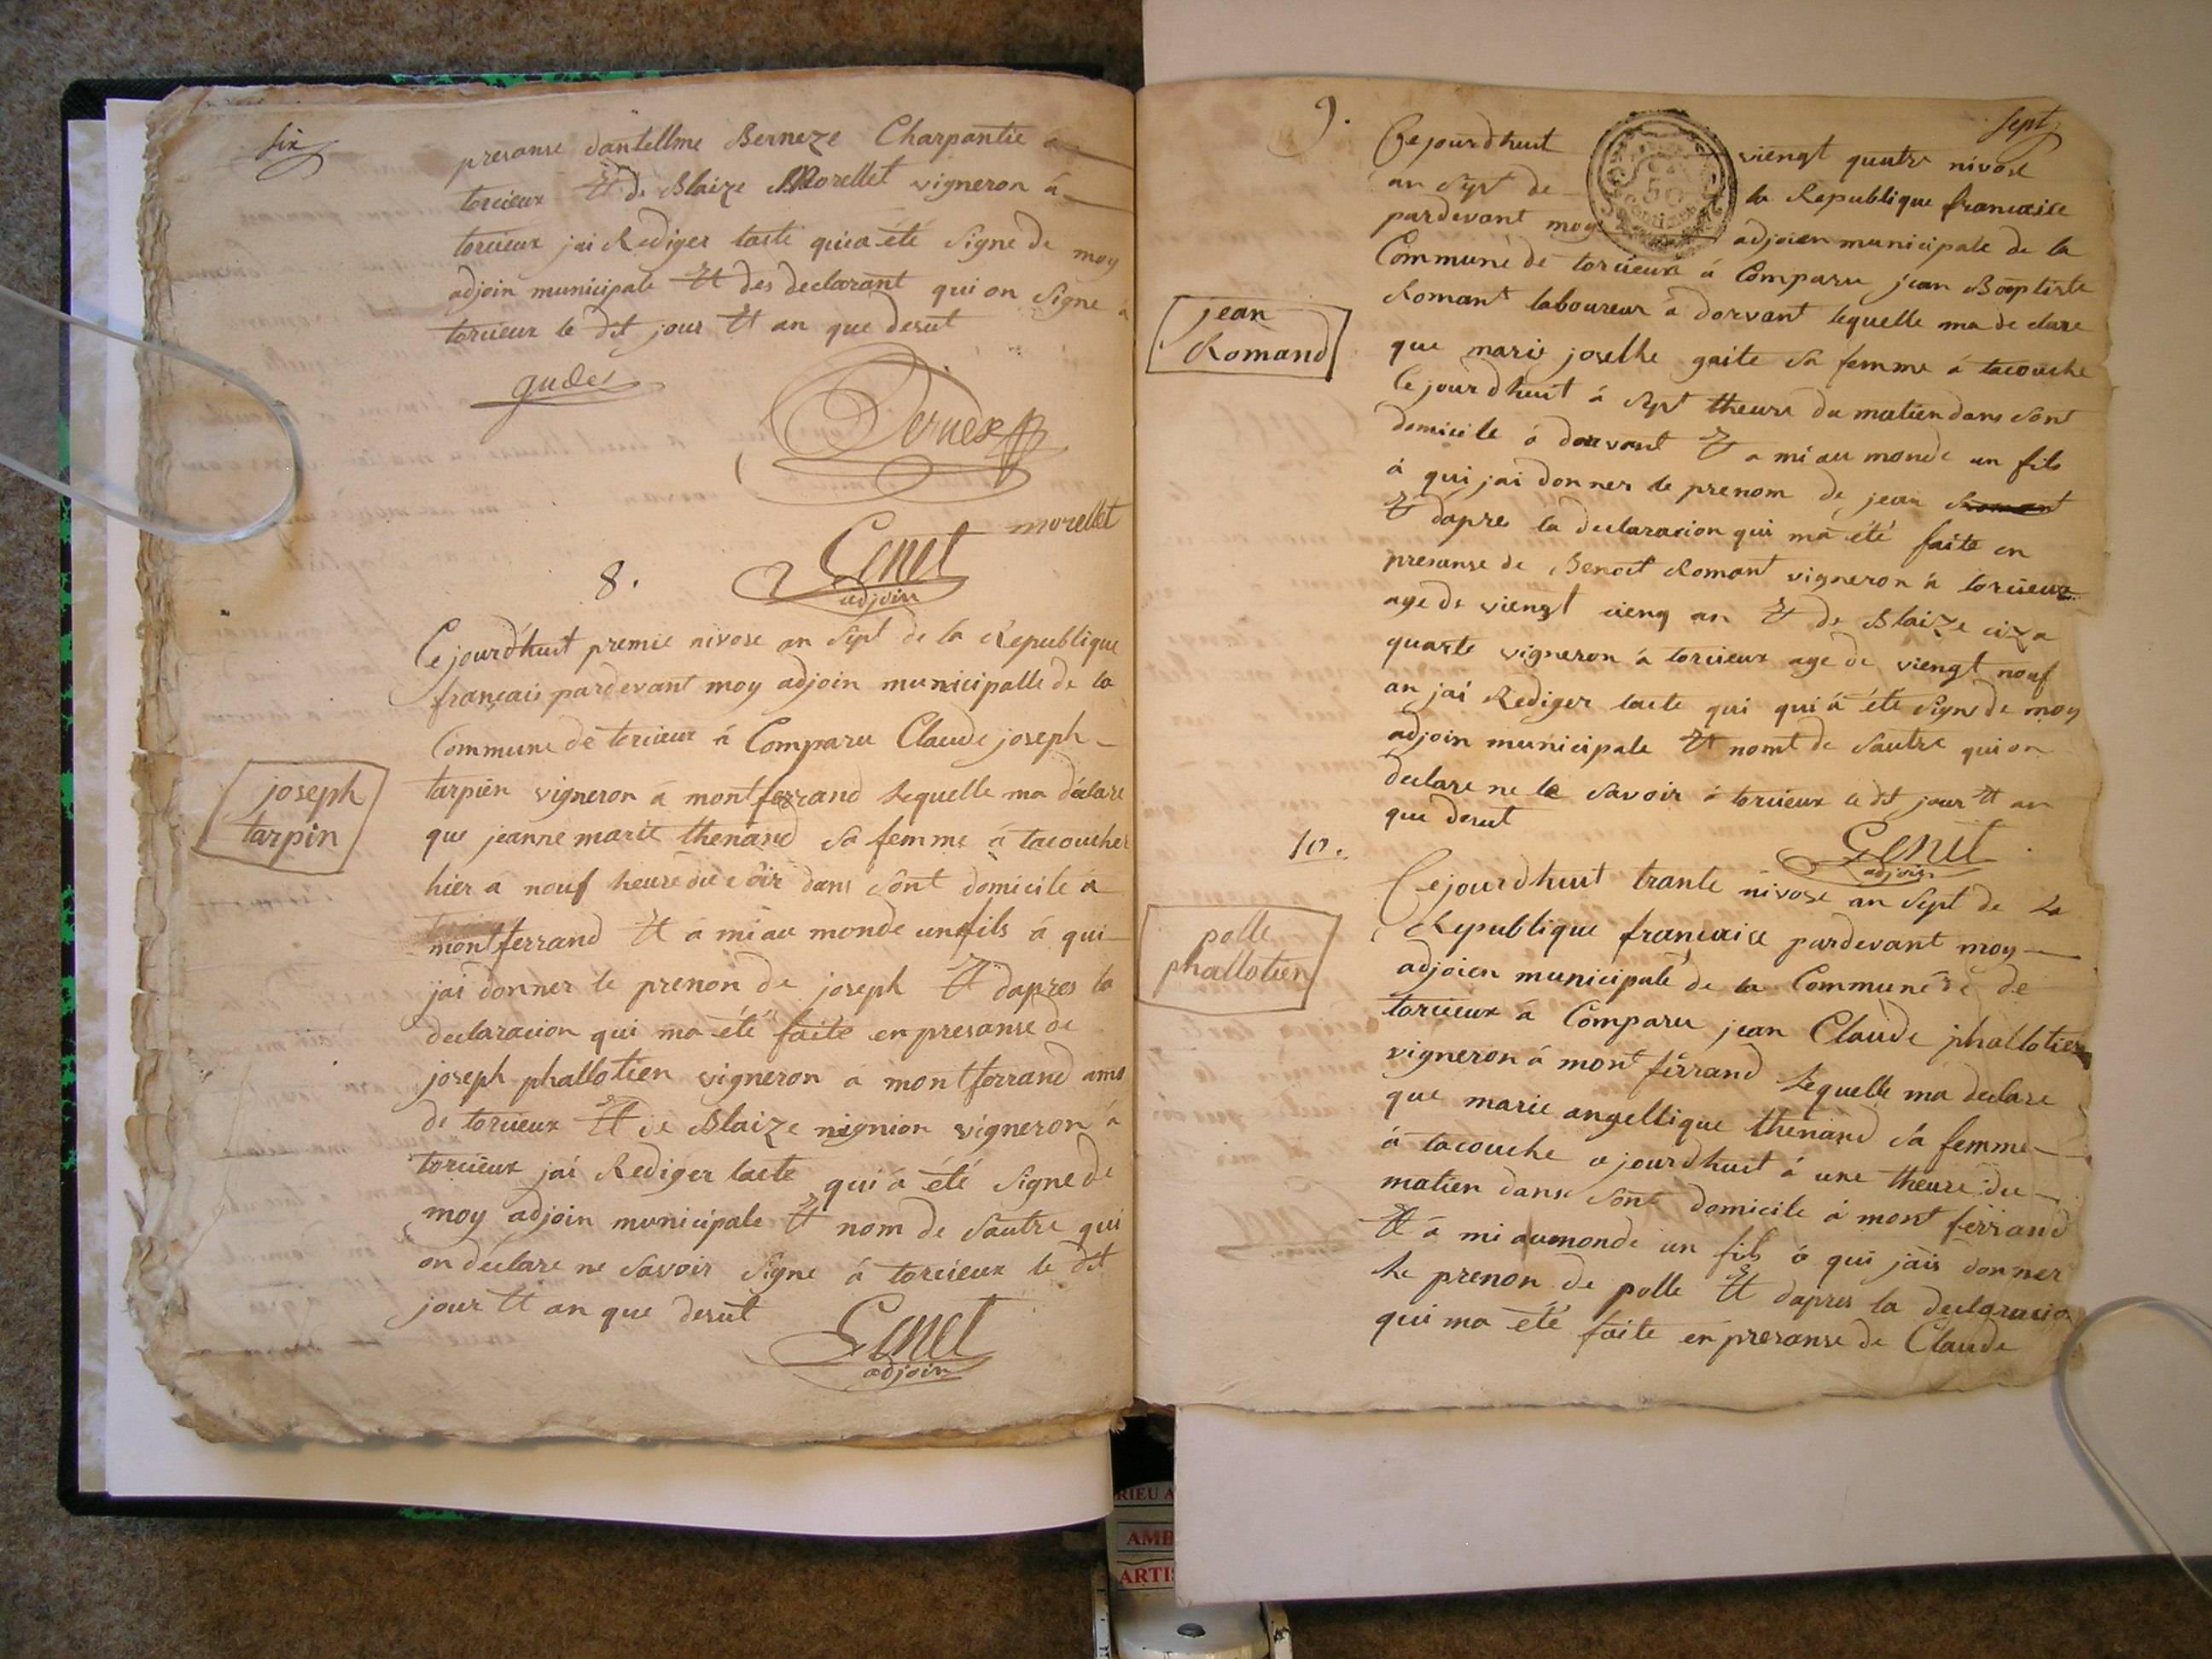 six
presanse dantellme Berneze Charpantie a
torcieux Et de Blaize Morellet vigneron á
torcieux jai Rediger lacte quia été Signe de moy
adjoin municipale Et des declarant qui on Signe a
torcieux le dit jour Et an que desut
morellet
Genet
adjoin
8.
Cejourdhuit premie nivose an Sept de la Republique
français pardevant moy adjoin municipalle de la
Commune de torcieux á Comparu Claude joseph
joseph
tarpin
tarpien vigneron á montferrand Lequelle ma déclare
que jeanne marie thenand Sa femme á tacoucher
hier a nouf heure du Soir dans Sont domicile á
montferrand Et á mi au monde un fils á qui
jai donner le prenon de joseph Et dapres la
declaracion qui ma été faite en presanse de
joseph phallotien vigneron a montferrand
de torcieux Et de Blaize nignion vigneron á
torcieux jai Rediger lacte qui á été Signe de
moy adjoin municipale Et nom de Sautre qui
on déclare ne Savoir Signe á torcieux le dit
jour Et an que desut
Genet
adjoin
sept
9.
Cejourdhuit viengt quatre nivose
an Sept de la Republique francaise
50
pardevant moy adjoien municipale de la
Commune de torcieux á Comparu jean Baptiste
jean
Romand
Romant laboureur á dorvant lequelle ma declare
que marie joselhe gaite Sa femme á tacouche
Cejourdhuit á Sept theure du matien dans Sont
domicile á dorvant Et a mi au monde un fils
á qui jai donner le prenom de jean Romant
Et dapres la declaracion qui ma été faite en
presanse de Benoit Romant vigneron á torcieux
age de viengt cienq an Et de Blaize ciza
quarte vigneron á torcieux age de viengt nouf
an jai Rediger lacte qui qui á été Signe de moy
adjoin municipale Et nomt de Sautre qui on
declare ne le Savoir á torcieux le dit jour Et an
que desut
Genet
adjoin
10.
Cejourdhuit trante nivose an Sept de La
Republique francaise pardevant moy
polle
phallotien
adjoien municipale de la Commune de de
torcieux á Comparu jean Claude phallotien
vigneron á mont ferrand Lequelle ma declare
que marie angellique thenand Sa femme
á tacouche ojourdhuit á une theure du
matien dans Sont domicile á mont ferrand
Et á mi aumonde un fils á qui jais donner
Le prenon de polle Et dapres la declaracion
qui ma été faite en presanse de Claude